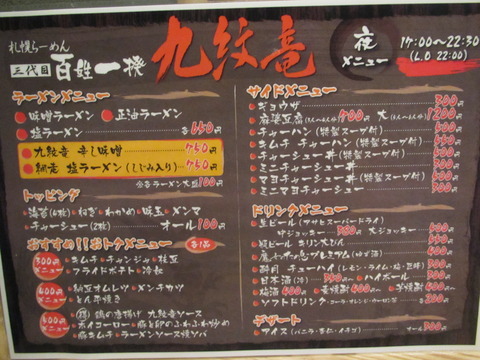 札幌らーめん
三代目 百姓一揆 九紋竜
夜メニュー
17:00〜22:30
(L.O 22:00)
ラーメンメニュー
味噌ラーメン 正油ラーメン
塩ラーメン 650円
九紋竜 辛し味噌 750円
塩ラーメン(しじみ入り) 750円
100円
トッピング
海苔(6枚) ねぎ わかめ 味玉 メンマ
チャーシュー(2枚) オール100円
おすすめ!!おトクメニュー
300円メニュー
キムチ チャンジャ 枝豆
フライドポテト 冷奴
400円メニュー
納豆オムレツ メンチカツ
とん平焼き
500円メニュー
鶏の唐揚げ 九紋竜ソース
ホイコーロー 豚と卵のふわふわ炒め
豚キムチ ラーメンソース焼ソバ
サイドメニュー
ギョウザ 300円
麻婆豆腐 400円 大 1200円
チャーハン(特製スープ付)
キムチ チャーハン(特製スープ付)
チャーシュー丼(特製スープ付)
ミニチャーシュー丼
マヨチャーシュー丼(特製スープ付)
ミニマヨチャーシュー
ドリンクメニュー
生ビール(アサヒスーパードライ)
中ジョッキー 大ジョッキー
瓶ビール キリンビール
チューハイ(レモン・ライム・
日本酒 ハイボール
梅酒 400円 麦焼酎 400円 芋焼酎 400円
ソフトドリンク 200円
デザート
アイス(バニラ・